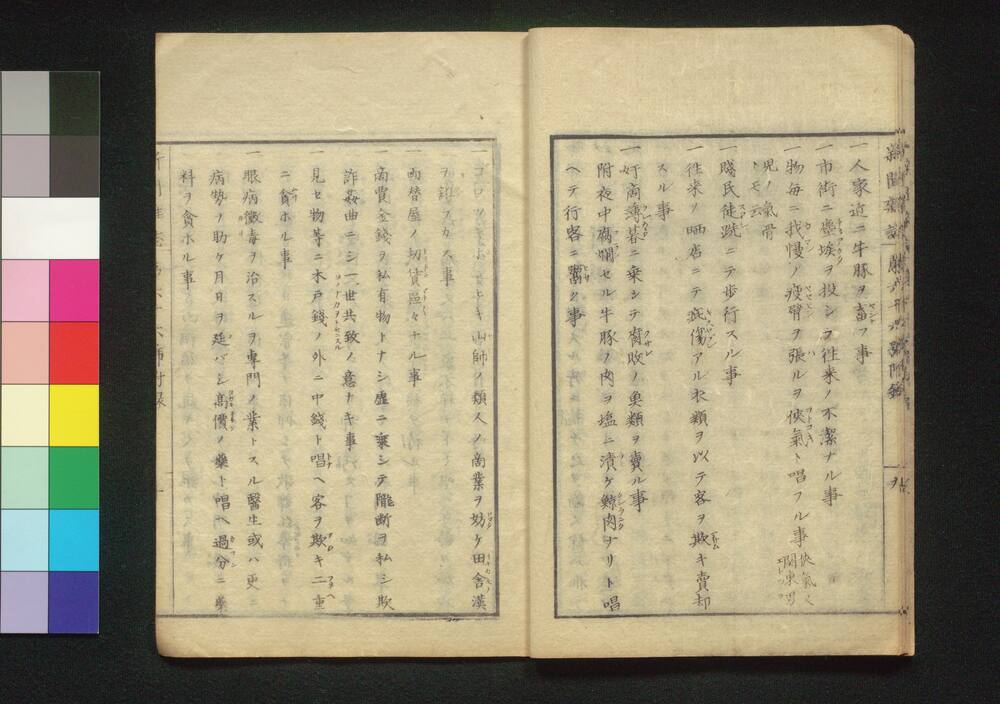 一人家近ニ牛豚ヲ畜フ事
一市街ニ塵埃ヲ投シテ往来ノ不潔ナル事
一物毎ニ我慢ノ痩臂ヲ張ルヲ侠氣ト唱フル事
児ノ氣骨
トモ云
一賤民徒跣ニテ歩行スル事
一往来ノ晒店ニテ疵傷アル衣類ヲ以テ客ヲ欺キ賣却
スル事
一奸商薄暮ニ乗シテ腐敗ノ魚類ヲ賣ル事
附夜中腐爛セル牛豚ノ肉ヲ塩ニ漬ケ鯨肉ナリト唱
ヘテ行客ニ鬻ク事
山師ノ類人ノ商業ヲ妨ケ田舎漢
ヲ カス事
一両替屋ノ切賃區々ナル事
一商賈金銭ヲ私有物トナシ虚ニ乗シテ隴断ヲ私シ欺
詐姦曲ニシテ世共致ノ意ナキ事
一見セ物等ニ木戸銭ノ外ニ中銭ト唱ヘ客ヲ欺キ二重
ニ貪ホル事
一眼病黴毒ヲ治スルヲ専門ノ業トスル醫生或ハ更ニ
病勢ノ助ケ月日ヲ延バシ高價ノ藥ト唱ヘ過分ニ藥
料ヲ貪ホル事